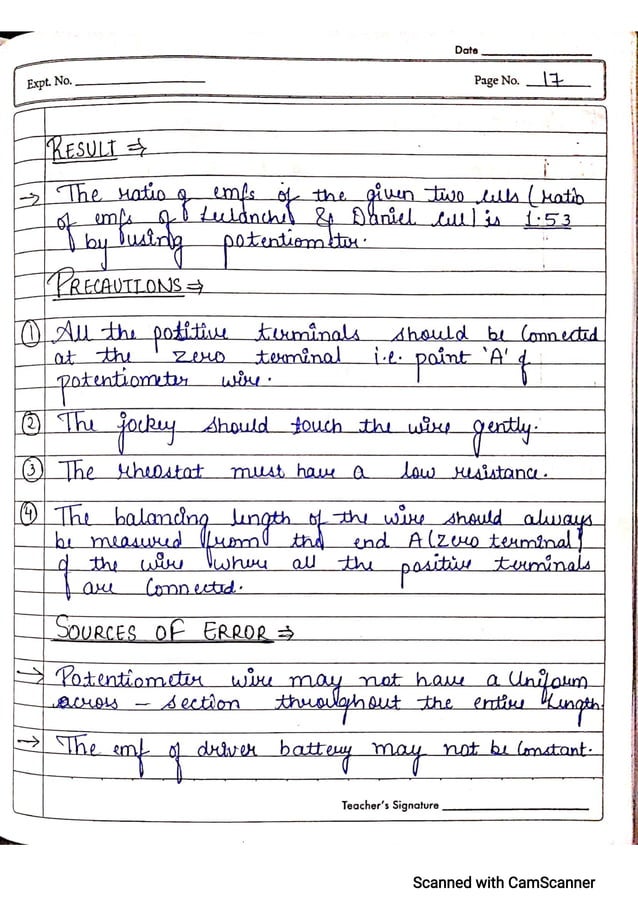 Date
Expt. No.
Page No. 17
RESULT ⇒
→ The ratio of emfs of the given two cells (ratio
of emfs of Leclanche & Daniel cell) is 1.53
by using potentiometer.
PRECAUTIONS ⇒
① All the positive terminals should be Connected
at the zero terminal i.e. point 'A' of
potentiometer wire.
② The jockey should touch the wire gently.
③ The rheostat must have a low resistance.
④ The balancing length of the wire should always
be measured from the end A (zero terminal)
of the wire where all the positive terminals
are Connected.
SOURCES OF ERROR ⇒
→ Potentiometer wire may not have a Uniform
across - section throughout the entire length.
→ The emf of driver battery may not be Constant.
Teacher's Signature
Scanned with CamScanner